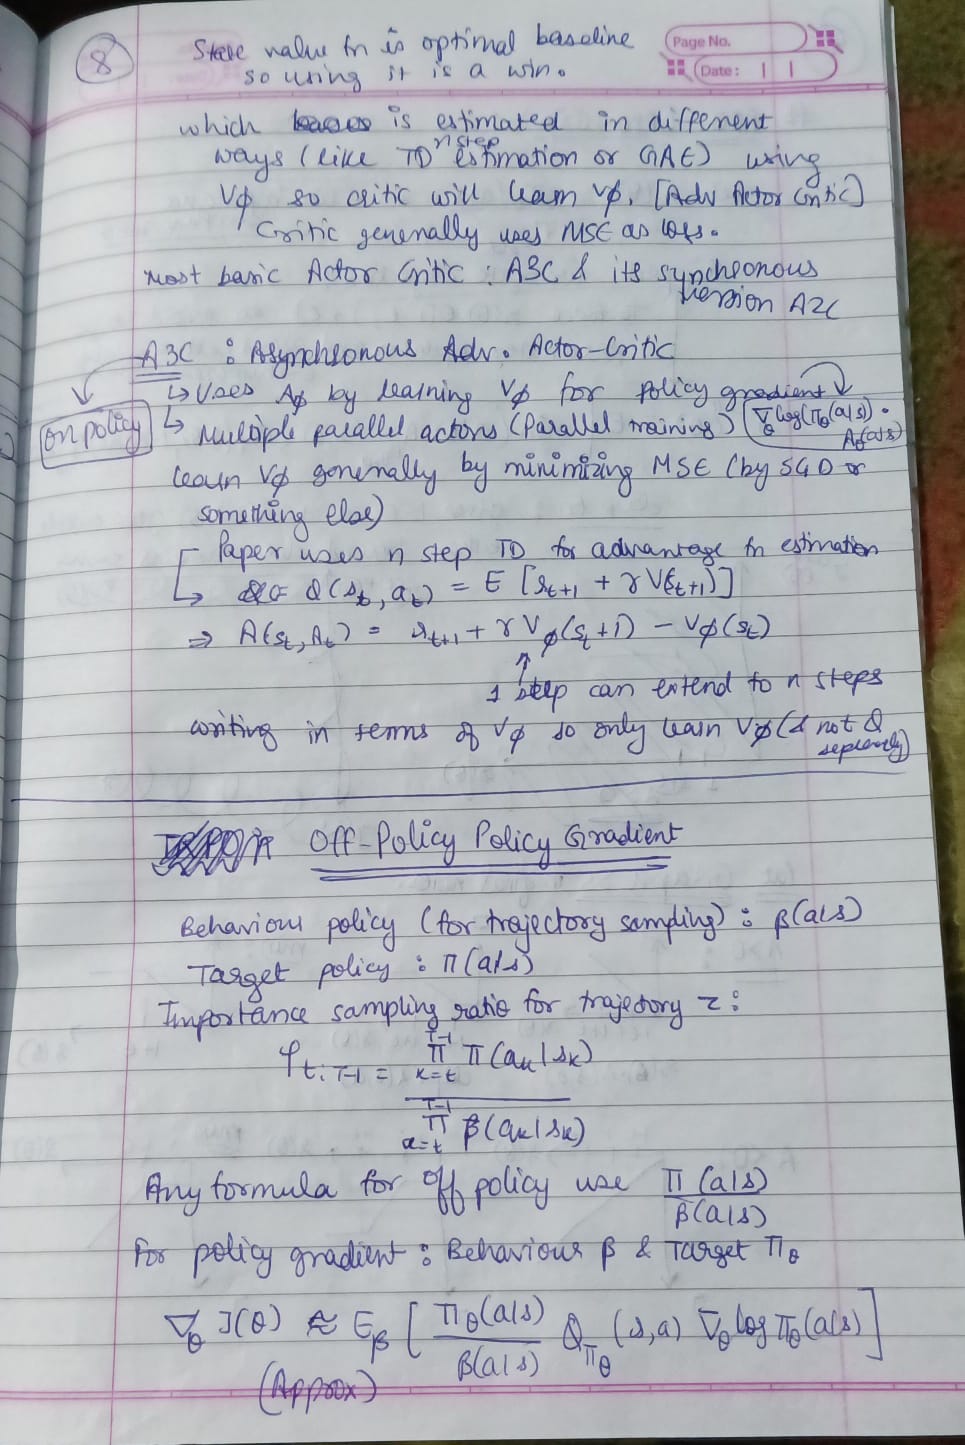 8
State value fn is optimal baseline
so using it is a win.
Page No.
Date: | |
which is estimated in different
ways (like TD n step estimation or GAE) using
Vϕ so critic will learn Vϕ. [Adv Actor Critic]
Critic generally uses MSE as loss.
Most basic Actor Critic : A3C & its synchronous
version A2C
A3C : Asynchronous Adv. Actor-Critic
↳ Uses Aϕ by learning Vϕ for policy gradient
on policy
↳ Multiple parallel actors (Parallel training) (∇θ log(πθ(a|s)) · Aϕ(a|s))
learn Vϕ generally by minimizing MSE (by SGD or
something else)
Paper uses n step TD for advantage fn estimation
→ Q(st, at) = E [rt+1 + γV(st+1)]
⇒ A(st, At) = rt+1 + γVϕ(st+1) − Vϕ(st)
↑
1 step can extend to n steps
writing in terms of Vϕ so only learn Vϕ (& not Q
seperately)
Off-Policy Policy Gradient
Behaviour policy (for trajectory sampling) : β(a|s)
Target policy : π(a|s)
Importance sampling ratio for trajectory τ :
T-1
φt:T-1 = Π π(ak|sk)
k=t
T-1
Π β(ak|sk)
k=t
Any formula for off policy use π(a|s)
β(a|s)
For policy gradient : Behaviour β & Target πθ
∇θ J(θ) ≈ Eβ [ πθ(a|s) / β(a|s) Qπθ (s,a) ∇θ log πθ(a|s) ]
(Approx)